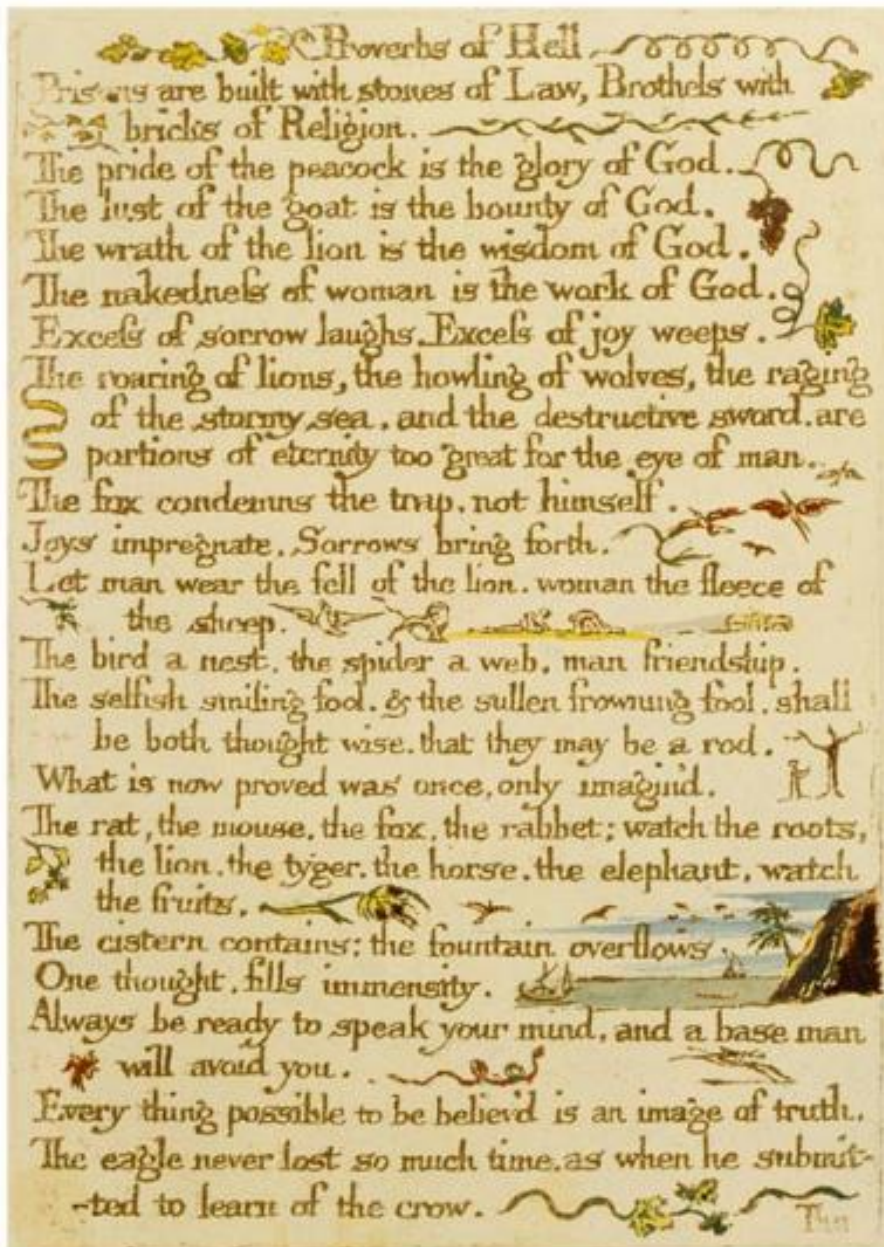 Proverbs of Hell
Prisons are built with stones of Law, Brothels with
bricks of Religion.
The pride of the peacock is the glory of God.
The lust of the goat is the bounty of God.
The wrath of the lion is the wisdom of God.
The nakedneſs of woman is the work of God.
Exceſs of sorrow laughs. Exceſs of joy weeps.
The roaring of lions, the howling of wolves, the raging
of the stormy sea, and the destructive sword. are
portions of eternity too great for the eye of man.
The fox condemns the trap, not himself.
Joys impregnate. Sorrows bring forth.
Let man wear the fell of the lion. woman the fleece of
the sheep.
The bird a nest, the spider a web, man friendship.
The selfish smiling fool. & the sullen frowning fool. shall
be both thought wise. that they may be a rod.
What is now proved was once, only imagin'd.
The rat, the mouse, the fox, the rabbet; watch the roots,
the lion, the tyger, the horse, the elephant, watch
the fruits.
The cistern contains: the fountain overflows
One thought. fills immensity.
Always be ready to speak your mind, and a base man
will avoid you.
Every thing possible to be believ'd is an image of truth.
The eagle never lost so much time, as when he submit-
-ted to learn of the crow.
The